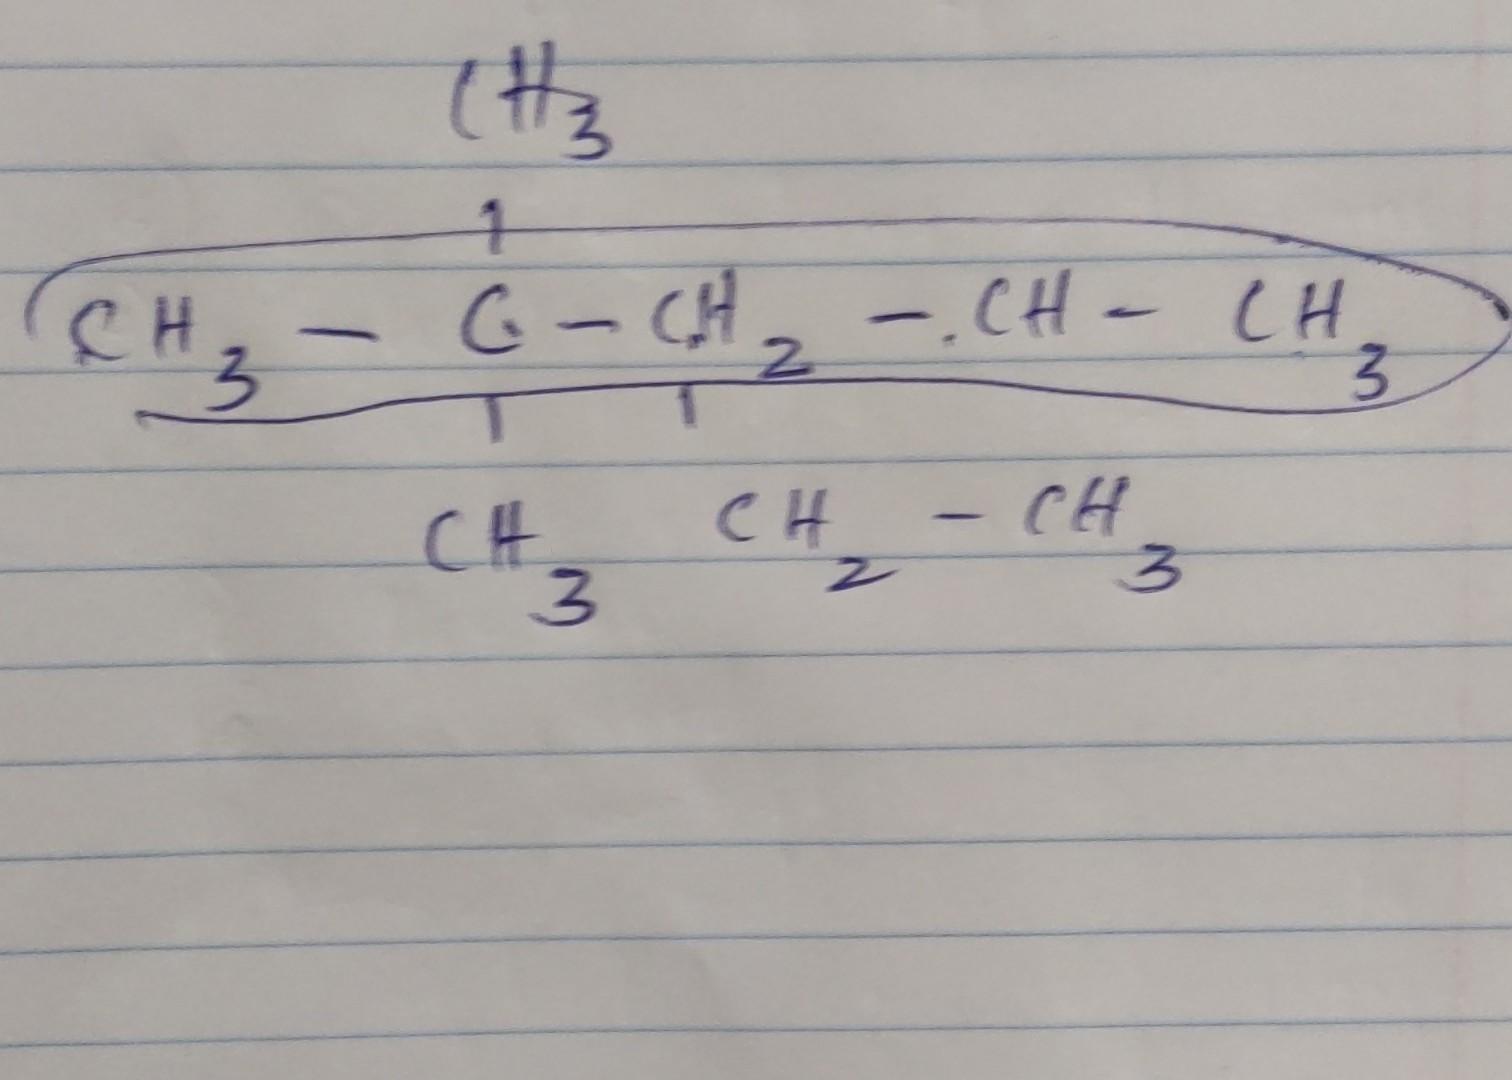 CH3
CH3 - C - CH2 - CH - CH3
CH3 CH2 - CH3